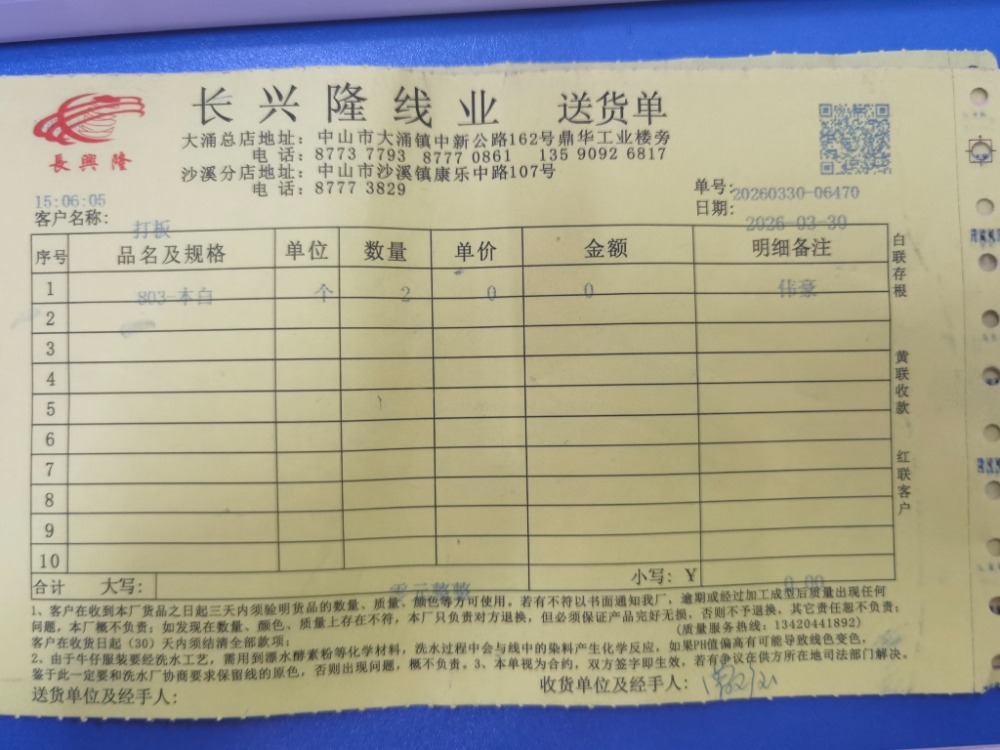 长兴隆线业 送货单
長興隆
大涌总店地址: 中山市大涌镇中新公路162号鼎华工业楼旁
电 话: 8773 7793 8777 0861 135 9092 6817
沙溪分店地址: 中山市沙溪镇康乐中路107号
电 话: 8777 3829
15:06:05
单号: 20260330-06470
客户名称: 打板
日期: 2026-03-30
序号 品名及规格 单位 数量 单价 金额 明细备注
1 803-本白 个 2 0 0 伟豪
2
3
4
5
6
7
8
9
10
白联存根
黄联收款
红联客户
合计 大写: 零元整 小写: ¥ 0.00
1、客户在收到本厂货品之日起三天内须验明货品的数量、质量、颜色等方可使用,若有不符以书面通知我厂,逾期或经过加工成型后质量出现任何
问题,本厂概不负责;如发现在数量、颜色、质量上存在不符,本厂只负责对方退换,但必须保证产品完好无损,否则不予退换,其它责任恕不负责;
客户在收货日起(30)天内须结清全部款项; (质量服务热线:13420441892)
2、由于牛仔服装要经洗水工艺,需用到漂水酵素粉等化学材料,洗水过程中会与线中的染料产生化学反应,如果PH值偏高有可能导致线色变色,
鉴于此一定要和洗水厂协商要求保留线的原色,否则出现问题,概不负责。3、本单视为合约,双方签字即生效,若有争议在供方所在地司法部门解决。
送货单位及经手人: 收货单位及经手人: